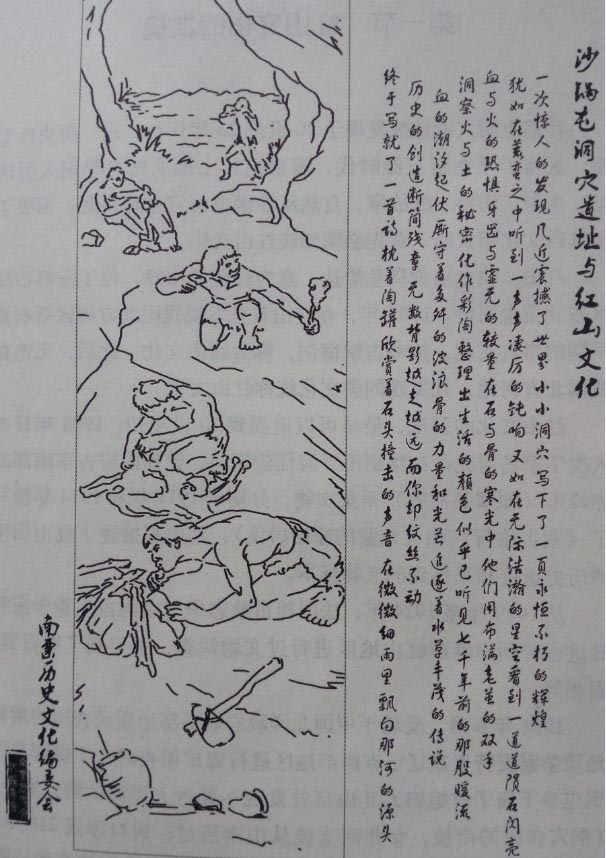 沙锅屯洞穴遗址与红山文化
一次惊人的发现几近震撼了世界 小小洞穴 写下了一页永恒不朽的辉煌
犹如在 之中听到一声声凄厉的钝响 如在无际浩瀚的星空看到一道道陨石闪亮
血与火的恐惧 牙齿与灵 的较量 在石与骨的寒光中他们布满老茧的双手
洞察火与土的秘密化作彩陶整理出生活的颜色 似乎已听见七千年前的那股暖流
血的潮汐起伏厮守着多舛的波浪 骨的力量和光芒追逐着水草丰茂的传说
历史的创造断简残章 无数背影越走越远 而你却纹丝不动
终于写就了一首诗 枕着陶罐欣赏着石头撞击的声音 在微微细雨里 飘向那河的源头
南票历史文化编委会